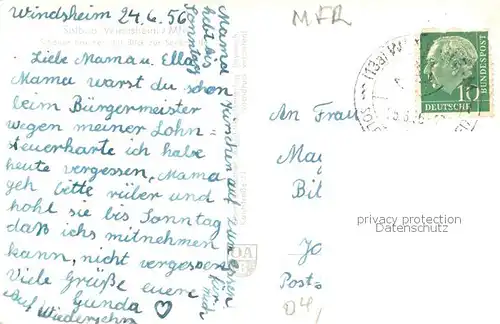 Windsheim 24.6.56
Liebe Mama u. Ella
Mama warst du schon
beim Bürgermeister
wegen meiner Lohn-
steuerkarte ich habe
heute vergessen, Mama
geh bitte rüber und
hohl sie bis Sonntag
daß ichs mitnehmen
kann, nicht vergessen
Viele Grüße eure
Gunda
Auf Wiedersehn
Mama
hebt bis
Sonntag
Kirschen auf zum essen
für mich
MFR
DEUTSCHE
BUNDESPOST
10
An Frau
May
Bil
privacy protection
Datenschutz
Post